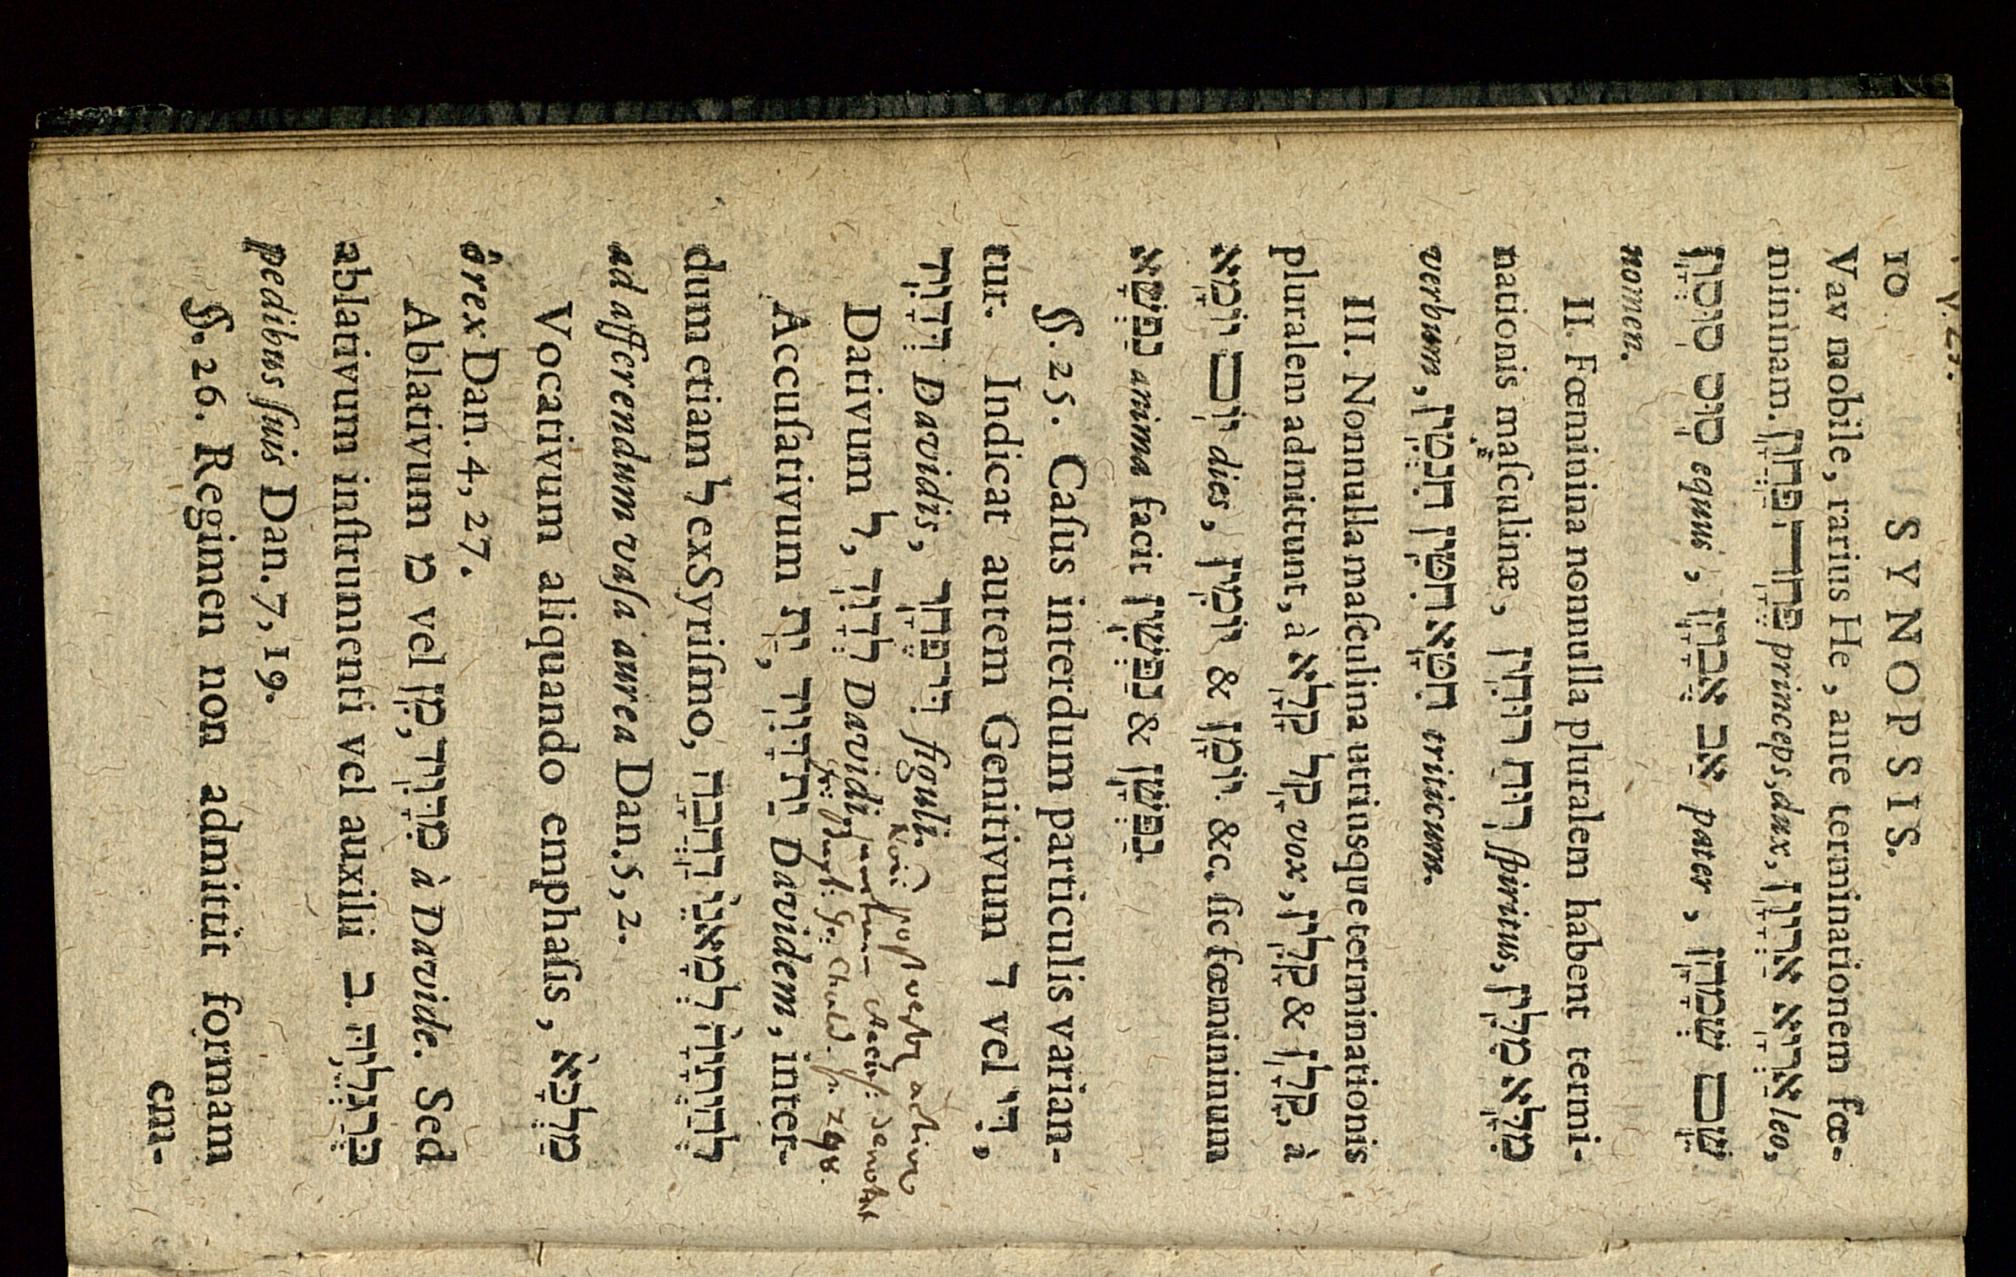 10 SYNOPSIS.
Vav mobile, rarius He, ante terminationem fœ-
mininam. פֶּחָה׃ פֶּחָוָן princeps, dux, אַרְיָא אַרְיָוָן leo,
סוּס סוּסָוָן equus, אַב אֲבָהָן pater, שֻׁם שְׁמָהָן
nomen.
II. Fœminina nonnulla pluralem habent termi-
nationis maſculinæ, רוּחַ רוּחִין ſpiritus, מִלָּא מִלִּין
verbum, חִטָּא חִטִּין חִנְטִין triticum.
III. Nonnulla maſculina utriusque terminationis
pluralem admittunt, à קָלָא קָל vox, קָלִין & קָלָן, à
יוֹמָא יוֹם dies, יוֹמִין & יוֹמָן. &c. ſic fœmininum
נַפְשָׁא anima facit נַפְשִׁין & נַפְשָׁן.
§. 25. Caſus interdum particulis varian-
tur. Indicat autem Genitivum ד vel דִּי,
דְּדָוִיד Davidis, דִּי־פֶחָר figuli.
Dativum ל, לְדָוִד Davidi,
Accuſativum יָת, יַת־דָּוִיד Davidem, inter-
dum etiam ל ex Syriſmo, לְהַיְתָיָה לְמָאנֵי דַהֲבָה
ad afferendum vaſa aurea Dan. 5, 2.
Vocativum aliquando emphaſis, מַלְכָּא
ô rex Dan. 4, 27.
Ablativum מ vel מִן, מִדָּוִיד à Davide. Sed
ablativum inſtrumenti vel auxilii ב. בְּרַגְלַיהּ
pedibus ſuis Dan. 7, 19.
§. 26. Regimen non admittit formam
em-